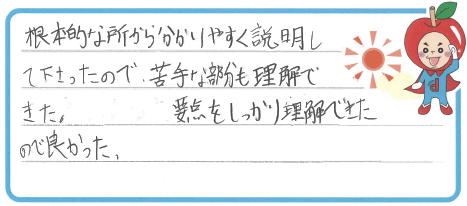 根本的な所から分かりやすく説明し
て下さったので、苦手な部分も理解で
きた。 要点をしっかり理解できた
ので良かった。